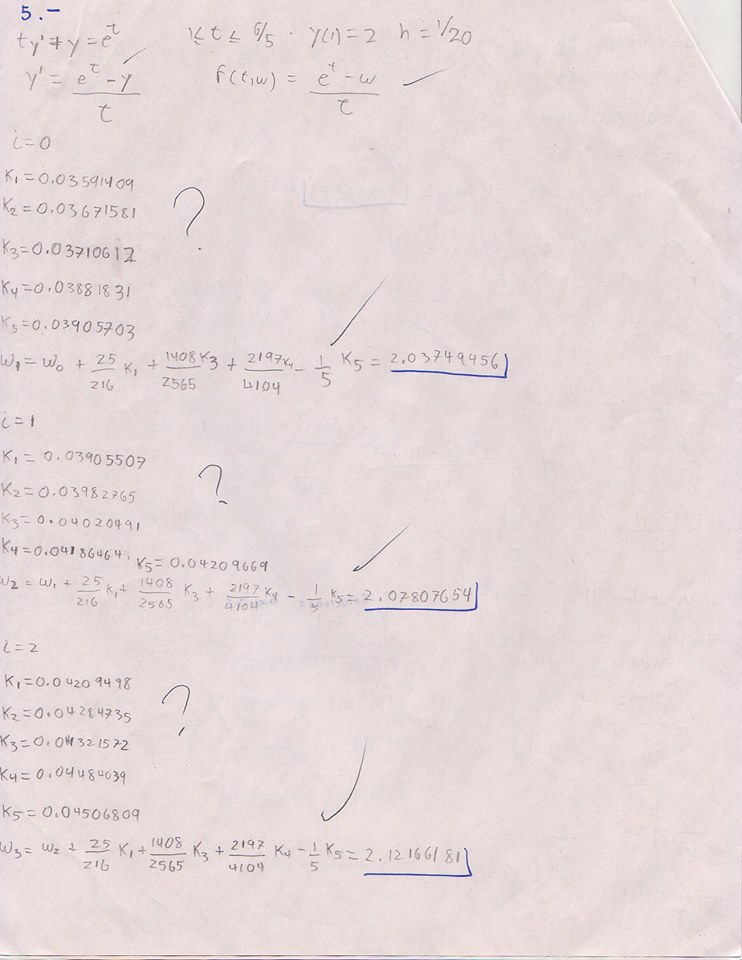 5.-
ty' + y = e^t   1 ≤ t ≤ 6/5 · y(1) = 2   h = 1/20
y' = (e^t - y)/t ✓   f(t,w) = (e^t - w)/t ✓
i=0
K₁=0.03591409
K₂=0.03671581 ?
K₃=0.03710612
K₄=0.03881831
K₅=0.03905703
w₁= w₀ + 25/216 K₁ + 1408K₃/2565 + 2197K₄/4104 - 1/5 K₅ = 2.03749456 ✓
i=1
K₁= 0.03905507
K₂=0.03982765 ?
K₃=0.04020491
K₄=0.04186464 K₅=0.04209669
w₂= w₁ + 25/216 K₁+ 1408/2565 K₃ + 2197/4104 K₄ - 1/5 K₅= 2.07807654 ✓
i=2
K₁=0.04209498
K₂=0.04284735 ?
K₃=0.04321572
K₄=0.04484039
K₅=0.04506809
w₃= w₂ + 25/216 K₁+ 1408/2565 K₃ + 2197/4104 K₄ - 1/5 K₅= 2.12166181 ✓